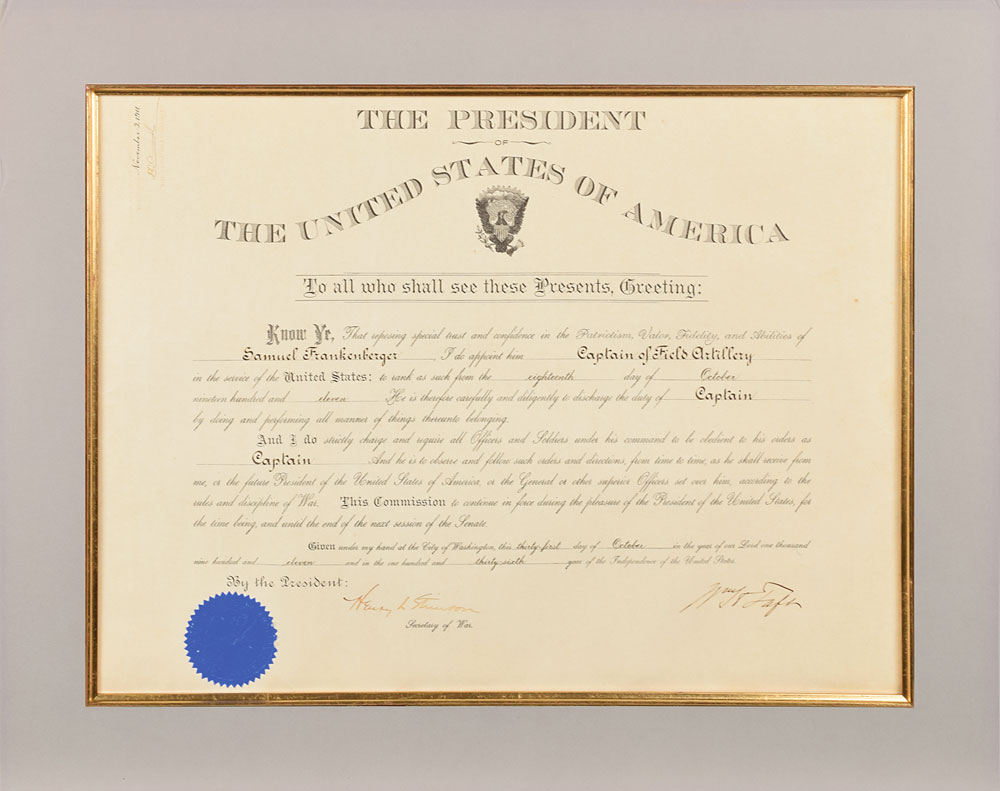 November 3, 1911
THE PRESIDENT
OF
THE UNITED STATES OF AMERICA
To all who shall see these Presents, Greeting:
Know Ye, That reposing special trust and confidence in the Patriotism, Valor, Fidelity, and Abilities of
Samuel Frankenberger, I do appoint him Captain of Field Artillery
in the service of the United States: to rank as such from the eighteenth day of October
nineteen hundred and eleven He is therefore carefully and diligently to discharge the duty of Captain
by doing and performing all manner of things thereunto belonging.
And I do strictly charge and require all Officers and Soldiers under his command to be obedient to his orders as
Captain And he is to observe and follow such orders and directions, from time to time, as he shall receive from
me, or the future President of the United States of America, or the General or other superior Officers set over him, according to the
rules and discipline of War. This Commission to continue in force during the pleasure of the President of the United States, for
the time being, and until the end of the next session of the Senate.
Given under my hand at the City of Washington, this thirty-first day of October in the year of our Lord one thousand
nine hundred and eleven and in the one hundred and thirty-sixth year of the Independence of the United States.
By the President:
Henry L. Stimson
Wm H Taft
Secretary of War.